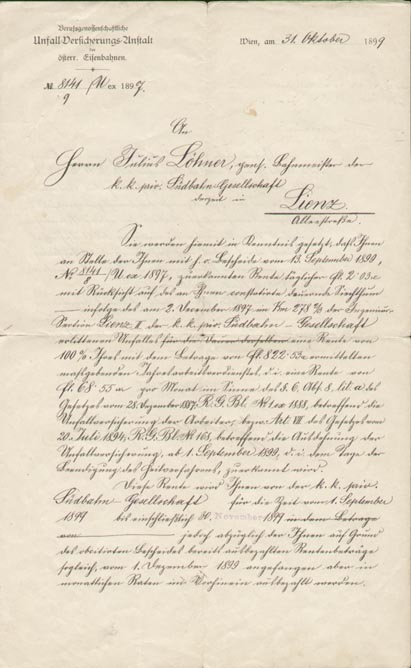 Berufsgenossenschaftliche
Unfall-Versicherungs-Anstalt
der
österr. Eisenbahnen.
Wien, am 31. Oktober 1899
№ 8141/9 /U ex 1897.
An
Herrn Julius Löhner, pens. Bahnmeister der
k. k. priv. Südbahn-Gesellschaft
derzeit in
Lienz.
Alleestraße.
Sie werden hiemit in Kenntnis gesetzt, daß Ihnen
an Stelle der Ihnen mit h. o. Bescheide vom 13. September 1899,
№ 8141/8 /U ex 1897, zuerkannten Rente täglicher fl. 2·03
mit Rücksicht auf das an Ihnen constatirte dauernde Siechthum
infolge des am 2. December 1897 in Km 278 der Ingenieur-
Section Lienz II der k. k. priv. Südbahn-Gesellschaft
erlittenen Unfalles für die Dauer desselben eine Rente von
100% Ihres mit dem Betrage von fl. 822·53 ermittelten
maßgebenden Jahresarbeitsverdienstes, d. i. eine Rente von
fl. 68·55 pro Monat im Sinne des § 6, lit. a des
Gesetzes vom 28. Dezember 1887, R. G. Bl. № 1 ex 1888, betreffend die
Unfallversicherung der Arbeiter, bezw. Art. VII des Gesetzes vom
20. Juli 1894, R. G. Bl. № 168, betreffend die Ausdehnung der
Unfallversicherung, ab 1. September 1899, d. i. dem Tage der
Beendigung des Heilverfahrens, zuerkannt wird.
Diese Rente wird Ihnen von der k. k. priv.
Südbahn-Gesellschaft für die Zeit vom 1. September
1899 bis einschließlich 30. November 1899 in dem Betrage
von jedoch abzüglich der Ihnen auf Grund
des obcitirten Bescheides bereits ausbezahlten Rentenbeträge
sogleich, vom 1. Dezember 1899 angefangen aber in
monatlichen Raten im Vorhinein ausbezahlt werden.